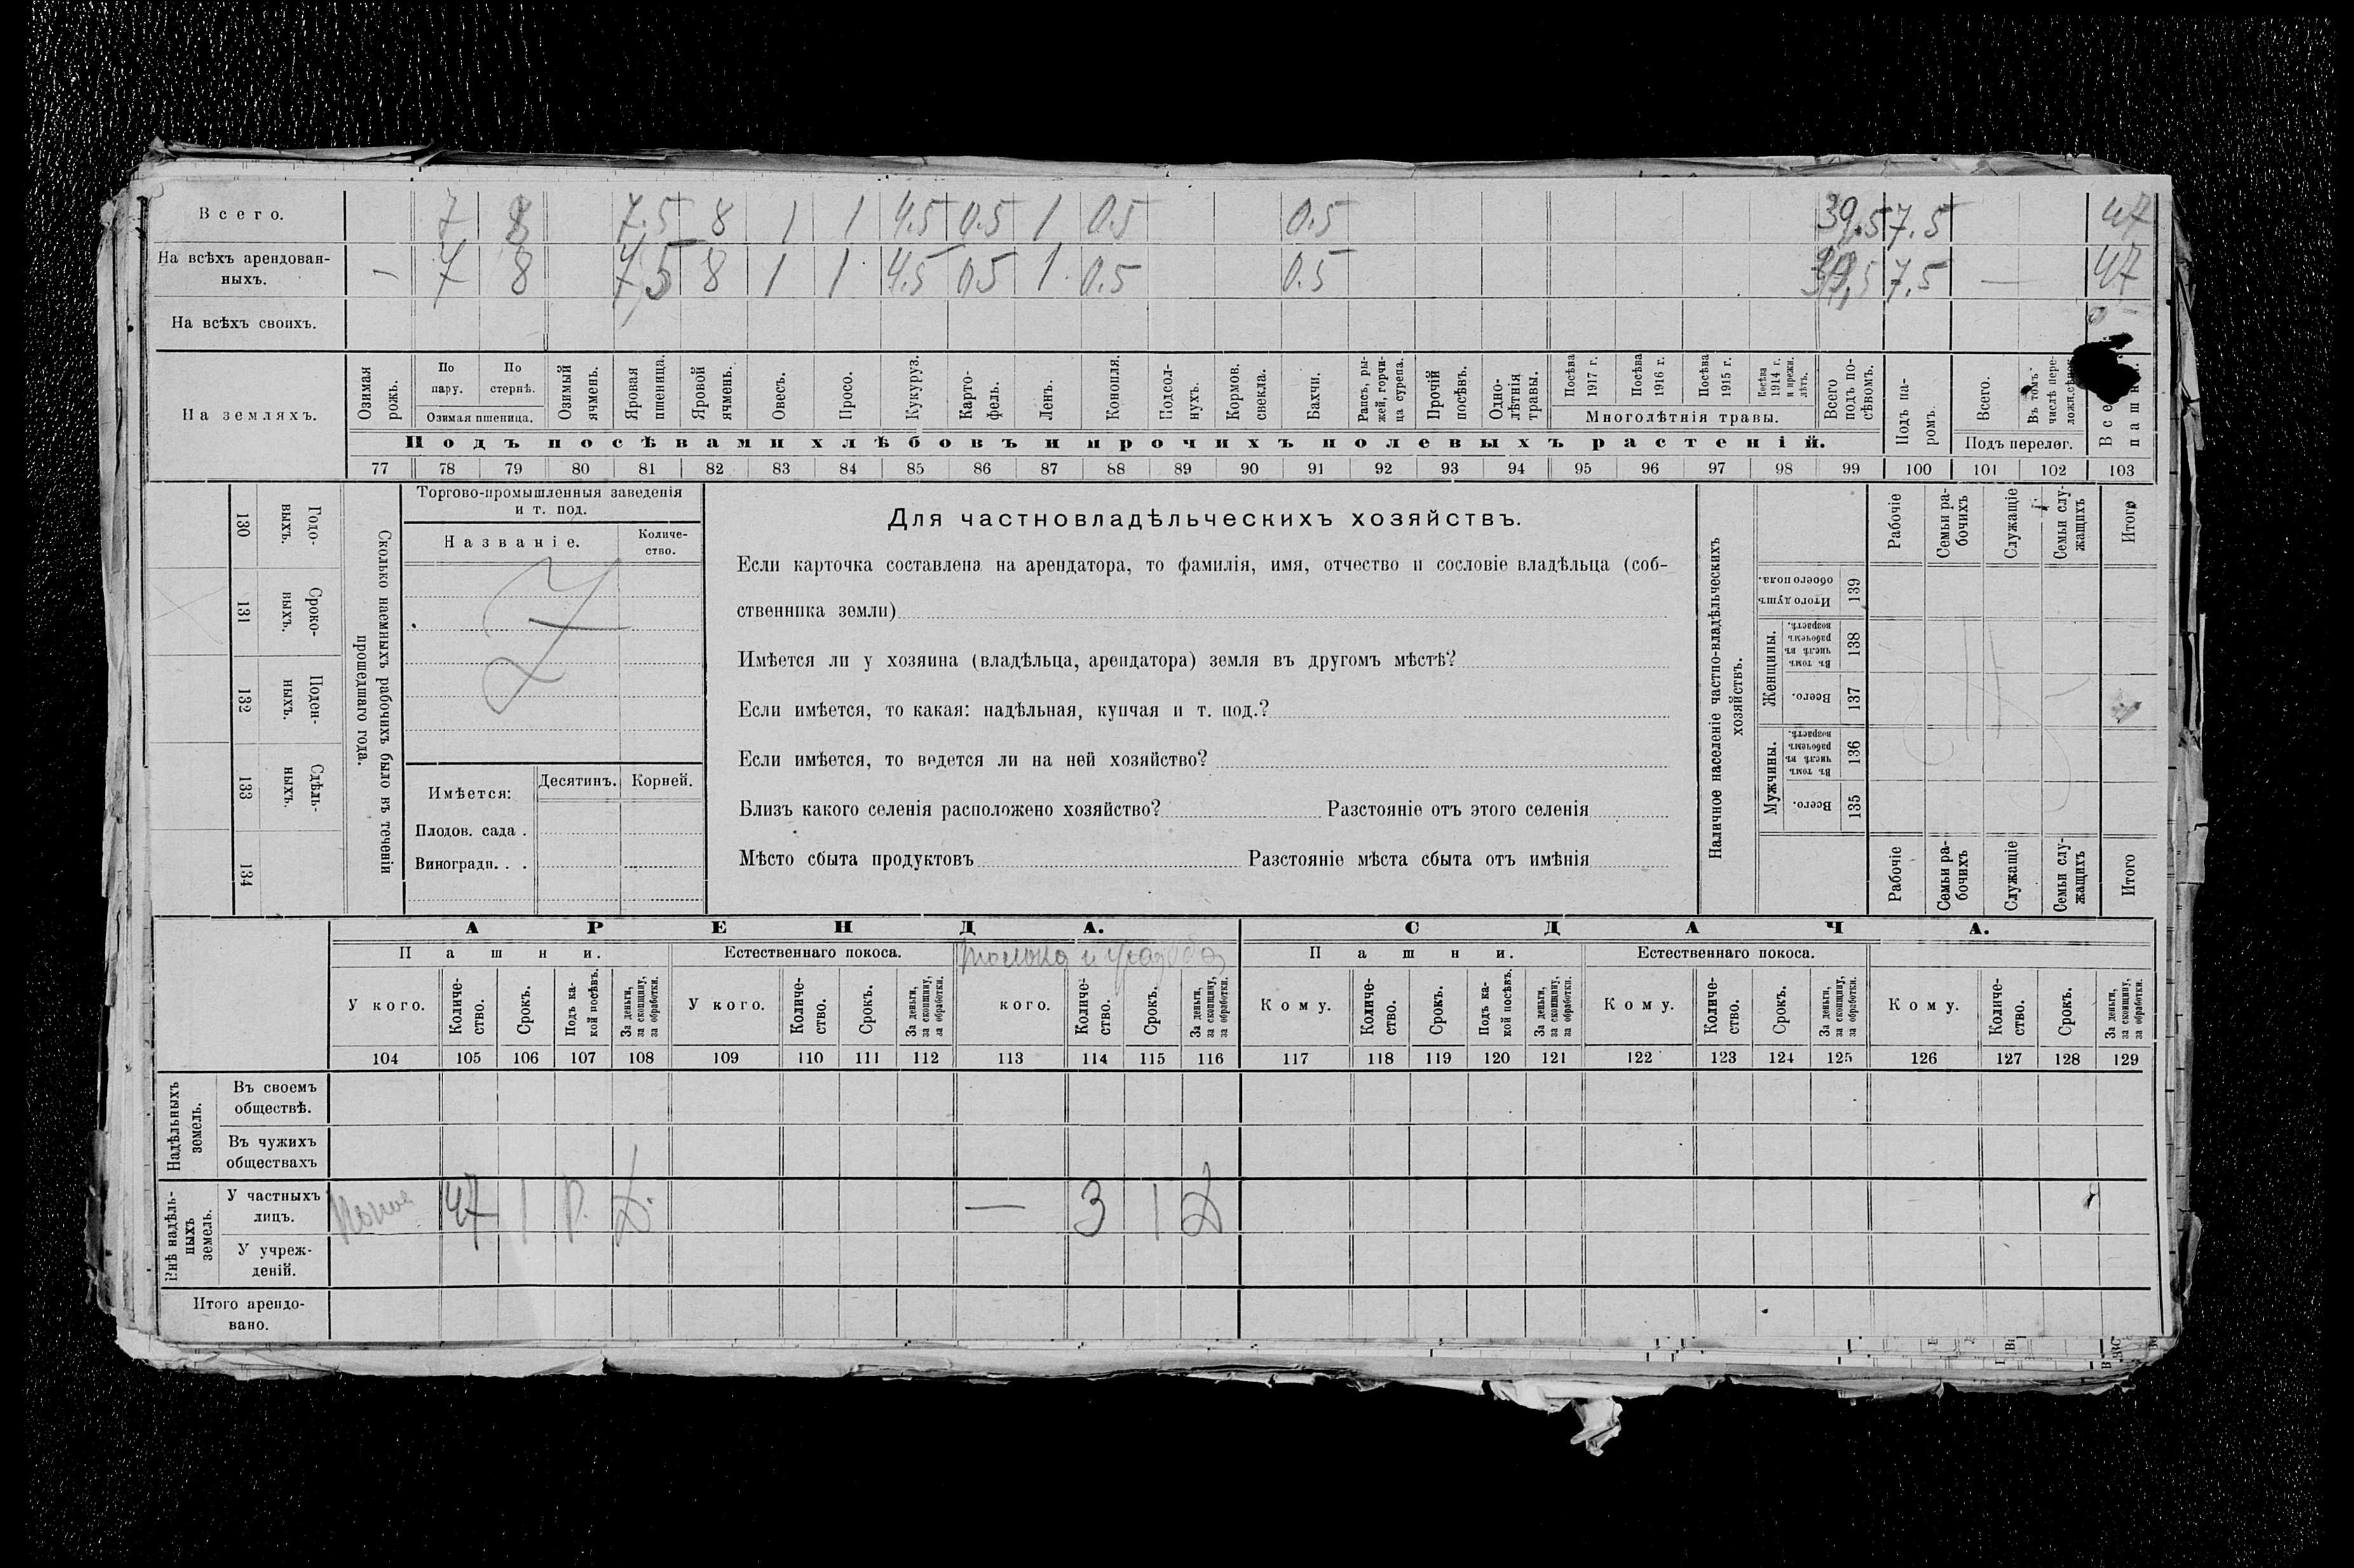 Всего. 7 8 7.5 8 1 1 4.5 0.5 1 0.5 0.5 39.5 7.5 47
На всѣхъ арендован-
ныхъ. — 7 8 7.5 8 1 1 4.5 0.5 1 0.5 0.5 39,5 7.5 — 47
На всѣхъ своихъ.
На земляхъ.
Озимая рожь.
По пару.
По стернѣ.
Озимая пшеница.
Озимый ячмень.
Яровая пшеница.
Яровой ячмень.
Овесъ.
Просо.
Кукуруз.
Карто-
фель.
Ленъ.
Конопля.
Подсол-
нухъ.
Кормов. свекла.
Бахчи.
Рапсъ, ры-
жей, горчи-
ца сурепа.
Прочій посѣвъ.
Одно-
лѣтнія травы.
Посѣва 1917 г.
Посѣва 1916 г.
Посѣва 1915 г.
Посѣва 1914 г. и прежн. лѣтъ.
Многолѣтнія травы.
Всего подъ по-
сѣвомъ.
Подъ па-
ромъ.
Всего.
Въ томъ числѣ пере-
Подъ перелог.
Подъ посѣвами хлѣбовъ и прочихъ полевыхъ растеній.
77 78 79 80 81 82 83 84 85 86 87 88 89 90 91 92 93 94 95 96 97 98 99 100 101 102 103
130 Годо-
выхъ.
131 Сроко-
выхъ.
132 Поден-
ныхъ.
133 Сдѣль-
ныхъ.
134
Сколько наемныхъ рабочихъ было въ теченіи
прошедшаго года.
Торгово-промышленныя заведенія
и т. под.
Названіе.
Количе-
ство.
Имѣется:
Десятинъ. Корней.
Плодов. сада .
Виноградн. . .
Для частновладѣльческихъ хозяйствъ.
Если карточка составлена на арендатора, то фамилія, имя, отчество и сословіе владѣльца (соб-
ственника земли)
Имѣется ли у хозяина (владѣльца, арендатора) земля въ другомъ мѣстѣ?
Если имѣется, то какая: надѣльная, купчая и т. под.?
Если имѣется, то ведется ли на ней хозяйство?
Близъ какого селенія расположено хозяйство? Разстояніе отъ этого селенія
Мѣсто сбыта продуктовъ Разстояніе мѣста сбыта отъ имѣнія
Наличное населеніе частно-владѣльческихъ
хозяйствъ.
Рабочіе
Семьи ра-
бочихъ
Служащіе
Семьи слу-
жащихъ
Итого
Итого душъ обоего пола. 139
Женщины.
Въ томъ числѣ въ рабочемъ возрастѣ. 138
Всего. 137
Мужчины.
Въ томъ числѣ въ рабочемъ возрастѣ. 136
Всего. 135
Рабочіе
Семьи ра-
бочихъ
Служащіе
Семьи слу-
жащихъ
Итого
АРЕНДА. СДАЧА.
Пашни. Естественнаго покоса. Пашни. Естественнаго покоса.
У кого.
Количе-
ство.
Срокъ.
Подъ ка-
кой посѣвъ.
За деньги,
за скопщину,
за обработки.
У кого.
Количе-
ство.
Срокъ.
За деньги,
за скопщину,
за обработки.
кого.
Количе-
ство.
Срокъ.
За деньги,
за скопщину,
за обработки.
Кому.
Количе-
ство.
Срокъ.
Подъ ка-
кой посѣвъ.
За деньги,
за скопщину,
за обработки.
Кому.
Количе-
ство.
Срокъ.
За деньги,
за скопщину,
за обработки.
Кому.
Количе-
ство.
Срокъ.
За деньги,
за скопщину,
за обработки.
104 105 106 107 108 109 110 111 112 113 114 115 116 117 118 119 120 121 122 123 124 125 126 127 128 129
Надѣльныхъ
земель.
Въ своемъ
обществѣ.
Въ чужихъ
обществахъ
Внѣ надѣль-
ныхъ
земель.
У частныхъ
лицъ. 47 1 Р. Д. — 3 1 Д
У учреж-
деній.
Итого арендо-
вано.